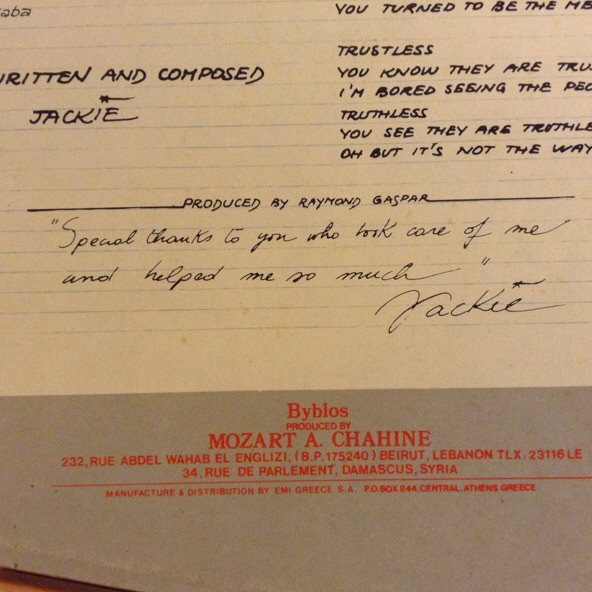 YOU TURNED TO BE THE
TRUSTLESS
WRITTEN AND COMPOSED
YOU KNOW THEY ARE
I'M BORED SEEING THE
JACKIE
TRUTHLESS
YOU SEE THEY ARE
OH BUT IT'S NOT THE WAY
PRODUCED BY RAYMOND GASPAR
"Special thanks to you who took care of me
and helped me so much"
Jackie
Byblos
PRODUCED BY
MOZART A. CHAHINE
232, RUE ABDEL WAHAB EL ENGLIZI, (B.P. 175240) BEIRUT, LEBANON TLX: 23116 LE
34, RUE DE PARLEMENT, DAMASCUS, SYRIA
MANUFACTURE & DISTRIBUTION BY EMI GREECE S.A. P.O.BOX 244, CENTRAL, ATHENS GREECE